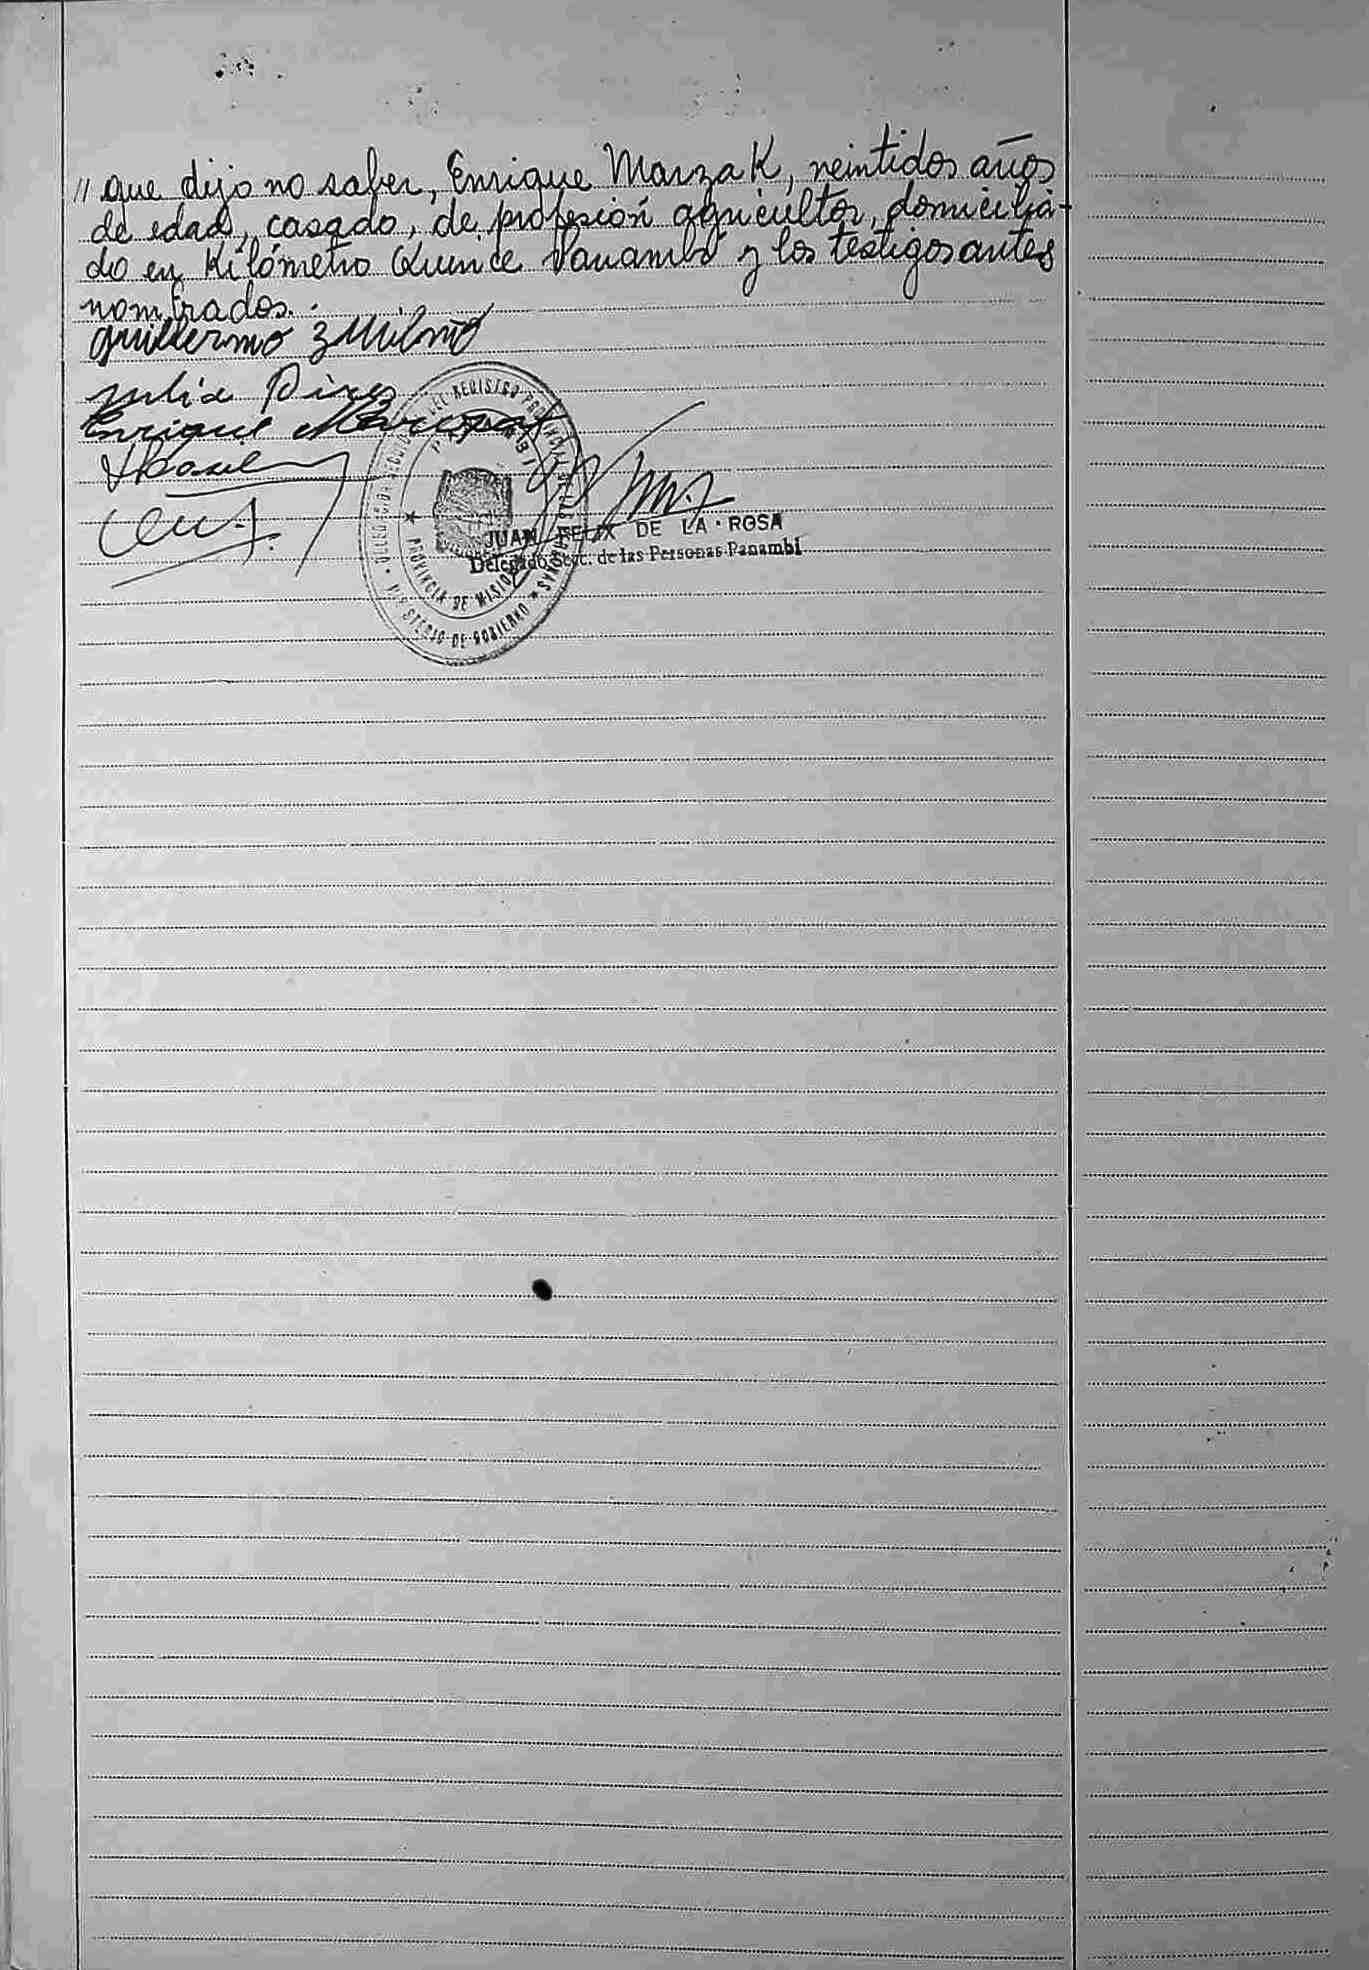 // que dijo no saber, Enrique Marzak, veintidos años
de edad, casado, de profesión agricultor, domicilia-
do en Kilómetro Quince Panambí y los testigos antes
nombrados.
Guillermo
Julia Pires
Enrique
DEL REGISTRO PROVINCIAL DE LAS PERSONAS
PROVINCIA DE MISIONES
DE GOBIERNO
JUAN FELIX DE LA ROSA
Delegado Secc. de las Personas Panambí